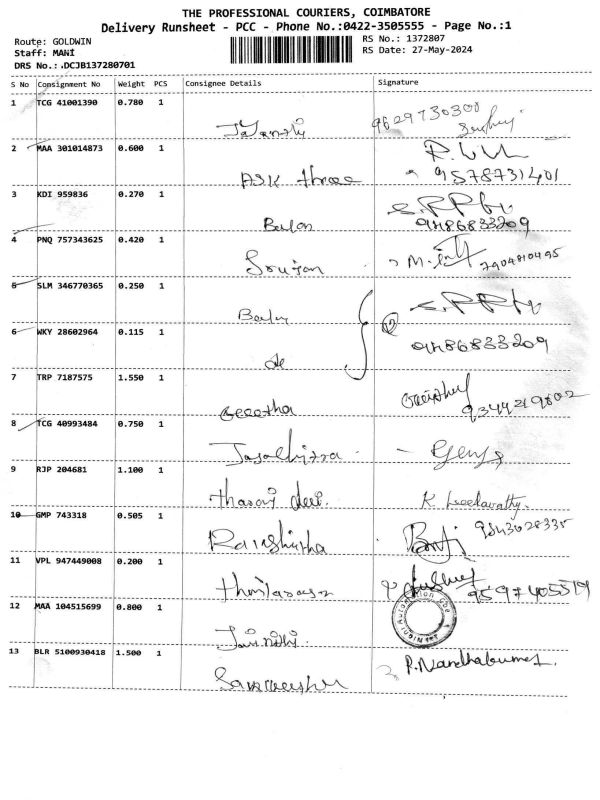 THE PROFESSIONAL COURIERS, COIMBATORE
Delivery Runsheet - PCC - Phone No.:0422-3505555 - Page No.:1
Route: GOLDWIN
RS No.: 1372807
Staff: MANI
RS Date: 27-May-2024
DRS No.: DCJB137280701
S No Consignment No Weight PCS Consignee Details Signature
1 TCG 41001390 0.780 1
9629730300
Jayanthi
2 MAA 301014873 0.600 1
ASK three 9578731401
3 KDI 959836 0.270 1
Balan 9486833209
4 PNQ 757343625 0.420 1
Srujan 7904810495
5 SLM 346770365 0.250 1
6 WKY 28602964 0.115 1
9486833209
do
7 TRP 7187575 1.550 1
Geetha 9344219802
8 TCG 40993484 0.750 1
9 RJP 204681 1.100 1
K. Leelavathy
10 GMP 743318 0.505 1
9843028335
11 VPL 947449008 0.200 1
9597405519
12 MAA 104515699 0.800 1
13 BLR 5100930418 1.500 1
P. Nandhakumar